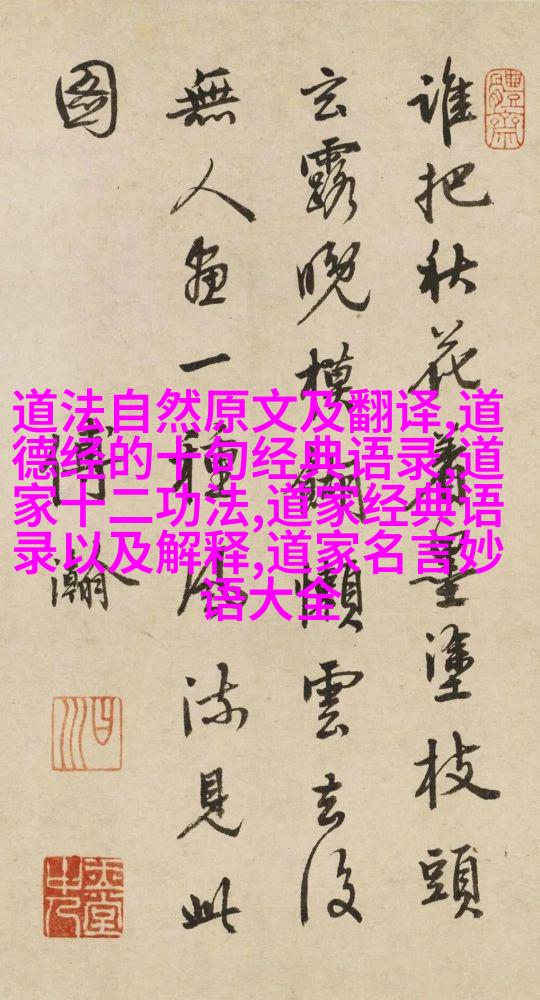 誰把秋花墨塗枝頭
玄露晚模糊懶雲去後
無人畫一種風流見此
圖
瀚
道法自然原文及翻译,道
德经的十句经典语录,道
家十二功法,道家经典语
录以及解释,道家名言妙
语大全